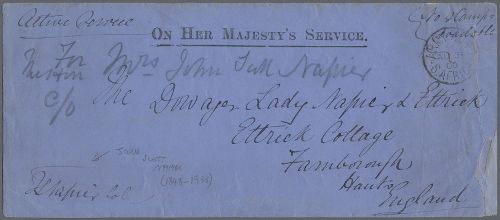 Active Service
No Stamps
available
ON HER MAJESTY'S SERVICE.
For Mrs John Scott Napier
c/o The Dowager Lady Napier & Ettrick
Ettrick Cottage
Farnborough
Hants
England
JOHN SCOTT
NAPIER
(1848-1938)
Napier Col